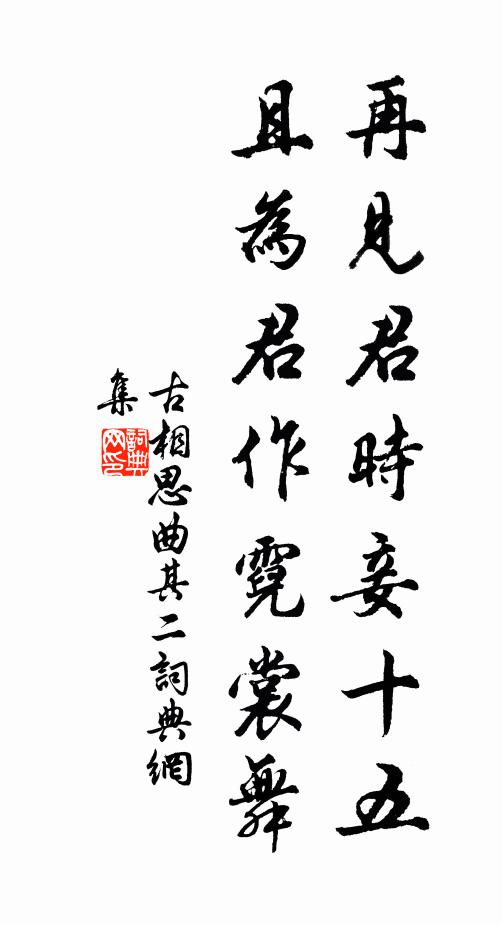 再見君時妾十五
且為君作霓裳舞
古相思曲其二詞典網
集
詞典
网印